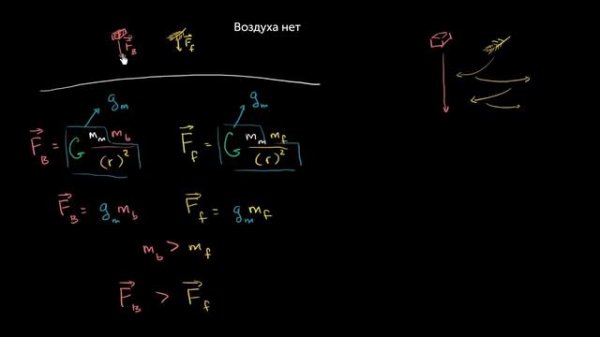 Воздуха нет
F⃗_B F⃗_f
g_m g_m
F⃗_B = G m_m m_b / (r)² F⃗_f = G m_m m_f / (r)²
F⃗_B = g_m m_b F⃗_f = g_m m_f
m_b > m_f
F⃗_B > F⃗_f